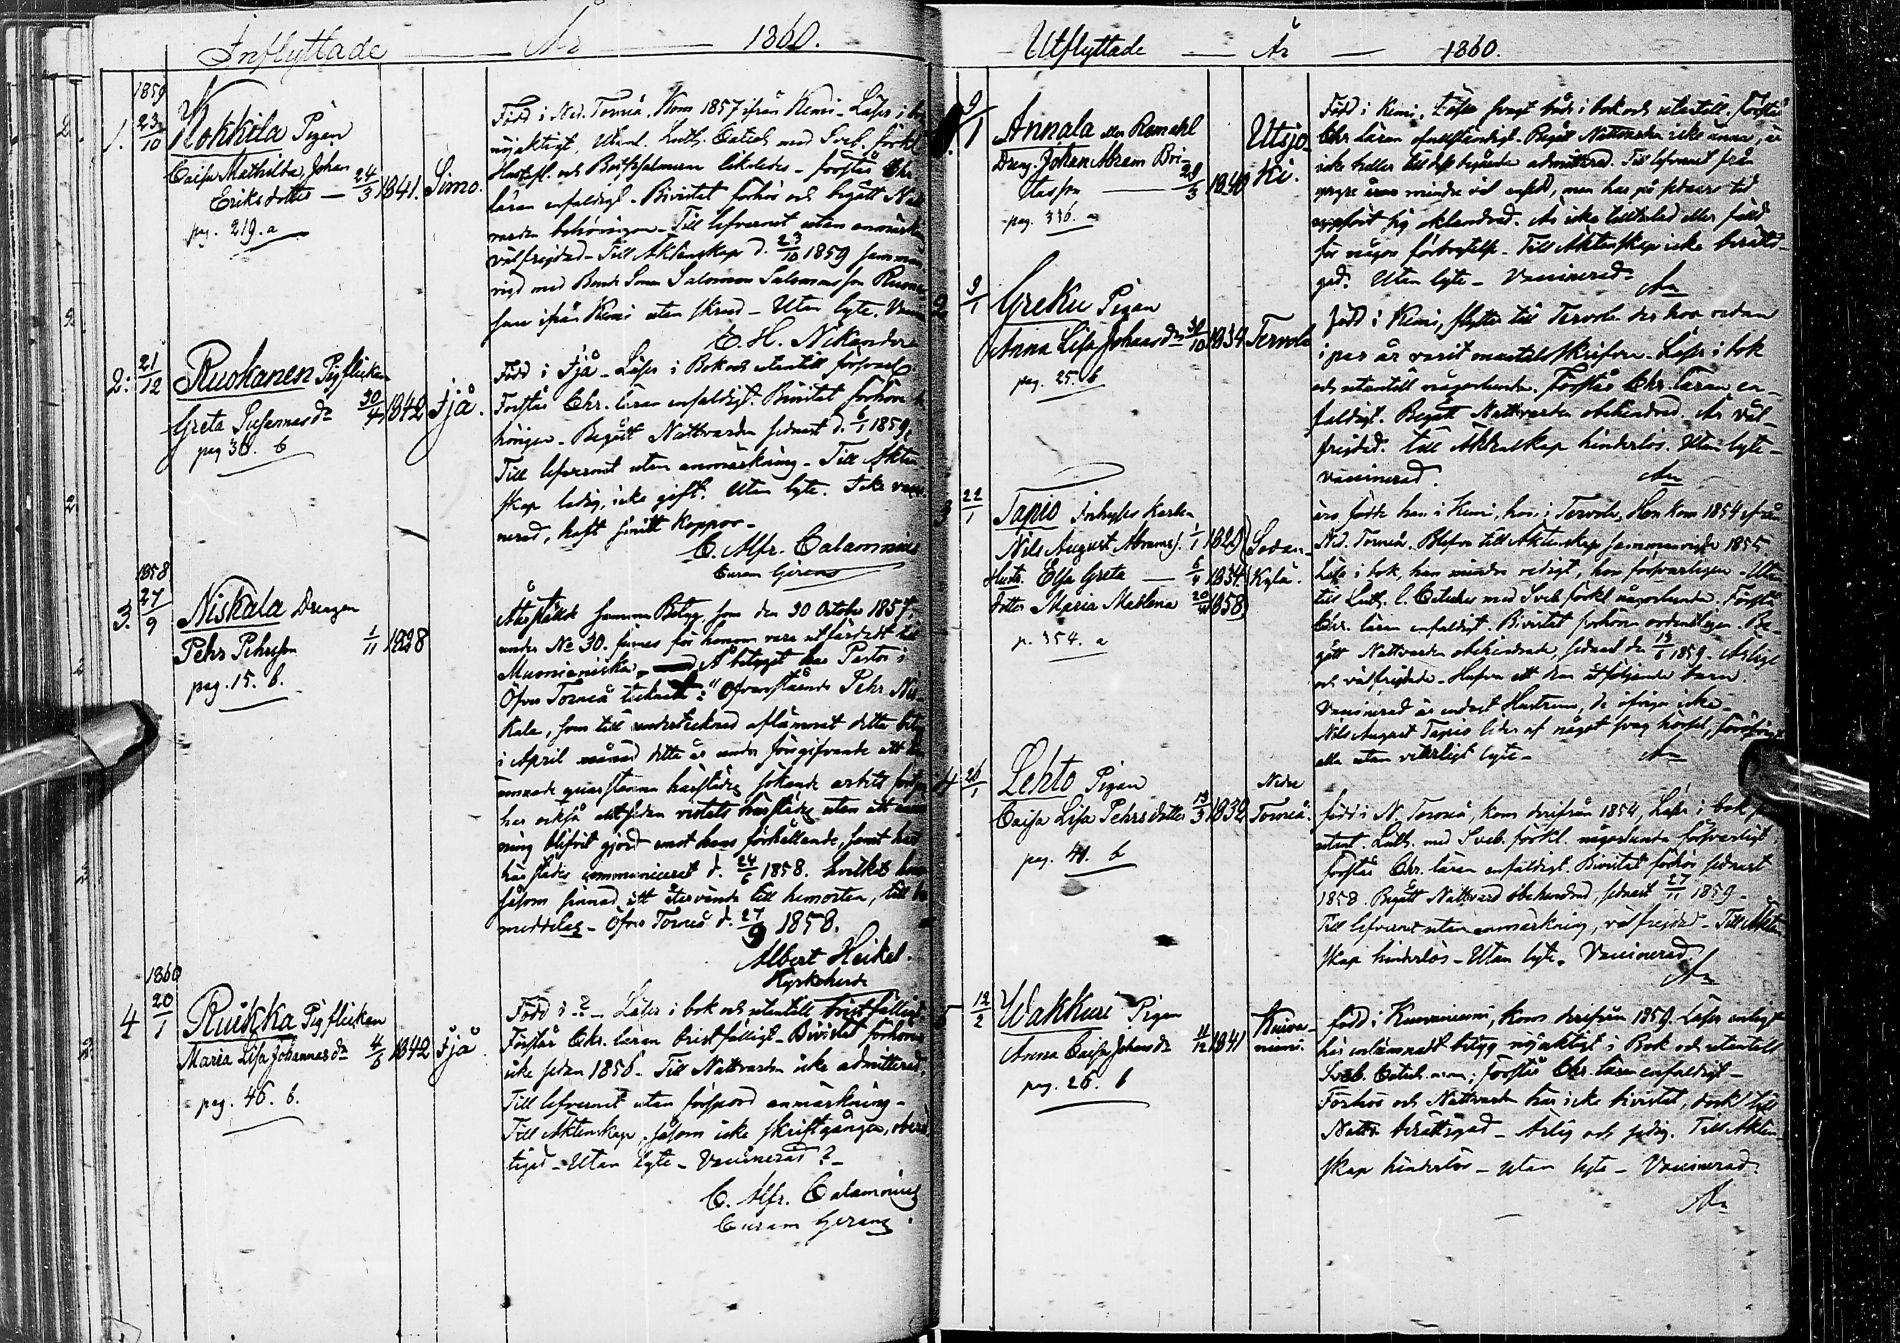 Inflyttade År 1860.
1859
1. 23/10 Kokkila Pigan
Caisa Mathilda Johan
Eriksdotter 24/3 1841. Simo.
pag. 219. a
Född i Ned. Torneå, Kom 1857 ifrån Kemi. Läser i
nöjaktigt, Utant. Luth. Catech. med Sveb. förkl.
Hustafl. och Botpsalmerna likaledes. förstår Chr.
läran enfaldigt. Bivistat förhör och begått Natt
varden behörigen. Till lefvernet utan anmärkn
välfrejdad. Till Äktenskap d. 23/10 1859 samman
vigd med Bonde Sonen Salomon Salomonsson
ifrån Kemi utan Utan lyte.
E. H. Nikander
2: 21/12 Ruokanen Pigflickan
Greta Susannasdr 30/4 1842 Ijå.
pag 36. b
Född i Ijå. Läser i Bok och utantill försvarl
Förstår Chr. läran enfaldigt. Bivistat förhören be
hörigen. Begått Nattvarden sednast d. 6/1 1859.
Till lefvernet utan anmärkning. Till Äkten
skap ledig, icke gift. Utan lyte. Icke vacci
nerad, haft koppor.
C. Alfr. Calamnius
Curam Gerens
1858
3. 27/9 Niskala Drängen
Pehr Pehrsson 1/11 1828
pag. 15. b.
Återställt samma Betyg som den 30 October 1857,
under No 30. finnes för honom vara utfärdadt till
Muonioniska. Å betyget har Pastor i
Öfver Torneå tecknat: "Ofvanstående Pehr Nis
kala, som till undertecknad aflämnat detta betyg
i April månad detta år under föregifvande att
quarstanna härstädes sökande arbets
har också alltsedan vistats härstädes utan att anmärk
ning blifvit gjord emot hans förhållande, samt har
härstädes communicerat d. 24/6 1858. hvilket
såsom sinnad att återvända till hemorten, till be
meddelas. Öfver Torneå d. 27/9 1858.
Albert Heikel.
Kyrkoherde
1860
4 20/1 Ruikka Pigflickan
Maria Lisa Johannesdr 4/5 1842 Ijå
pag. 46. b.
Född i ? Läser i bok och utantill bristfälligt
Förstår Chr. läran bristfälligt. Bivistat förhören
icke sedan 1856. Till Nattvarden icke admitterad.
Till lefvernet utan försport anmärkning.
Till Äktenskap, såsom icke skriftgången, oberät
tigad. Utan lyte. Vaccinerad?
C. Alfr. Calamnius
Curam Gerens.
Utflyttade År 1860.
9/1 Annala eller Remahl
Dräng Johan Abram Bri
tasson 29/3 1840 Utsjo
ki.
pag. 316. a
Född i Kemi. Läser svagt både i bok och utantill. Förstår
Chr. läran ofullständigt. Begått Nattvarden icke ännu, är
icke heller till dess begående admitterad. Till lefvernet från
yngre åren mindre väl ansedd, men har på sednare tid
uppfört sig oklandrad. Är icke tilltalad eller fälld
för någon förbrytelse. Till Äktenskap icke berätti
gad. Utan lyte. Vaccinerad.
2 9/1 Greku Pigan
Anna Lisa Johansdr 31/10 1834 Tervola
pag. 25. b
född i Kemi, flytta till Tervola der hon redan
i par år varit mantalsskrifven. Läser i bok
och utantill någorlunda. Förstår Chr. läran en
faldigt. Begått Nattvarden obehindrad. Är väl
frejdad. till Äktenskap hinderlös. Utan lyte
vaccinerad.
3 22/1 Tapio Inhyses karlen
Nils August Abramss. 1/1 1829 Sodan
Hustr. Elsa Greta 6/4 1834 Kylä.
dotter Maria Mathlena 20/11 1858
p. 354. a
äro födde han i Kemi, hon i Tervola, Han kom 1854 ifrån
Ned. Torneå. Blefvo till Äktenskap sammanvigde 1855.
Läser i bok, han mindre redigt, hon försvarligen. Utan
till Luth. l. Catechis med Sveb. förkl. någorlunda. Förstå
Chr. läran enfaldigt. Bivistat förhören ordentligen. Be
gått Nattvarden obehindrade, sednast den 19/6 1859. Ärlige
och välfrejdade. Hafva ett den åtföljande barn
Vaccinerad är endast Hustrun, de öfriga icke.
Nils August Tapio lider af något svag hörsel, föröfrigt
alla utan vitterligt lyte.
4 26/1 Lehto Pigan
Caisa Lisa Pehrsdotter 13/3 1832 Nedre
Torneå.
pag. 41. b
född i N. Torneå, kom derifrån 1854, Läser i bok
utant. Luth. med Sveb. förkl. någorlunda försvarligt
förstår Chr. läran enfaldigt. Bivistat förhör sednast
1858. Begått Nattvard obehindrad, sednast 27/11 1859.
Till lefvernet utan anmärkning, välfrejdad. Till Äkten
skap hinderlös. Utan lyte. Vaccinerad.
5 12/2 Wakkuri Pigan
Anna Caisa Johansdr 11/12 1841 Kuiva
niemi.
pag. 26. b
född i Kuivaniemi, kom derifrån 1859. Läser enligt
här inlämnadt betyg nöjaktigt i Bok och utantill
Sveb. Catech.; förstår Chr. läran enfaldigt
Förhör och Nattvarden har icke bivistat, dock till
Nattv. berättigad. Ärlig och sedig. Till Äkten
skap hinderlös. utan lyte. Vaccinerad.